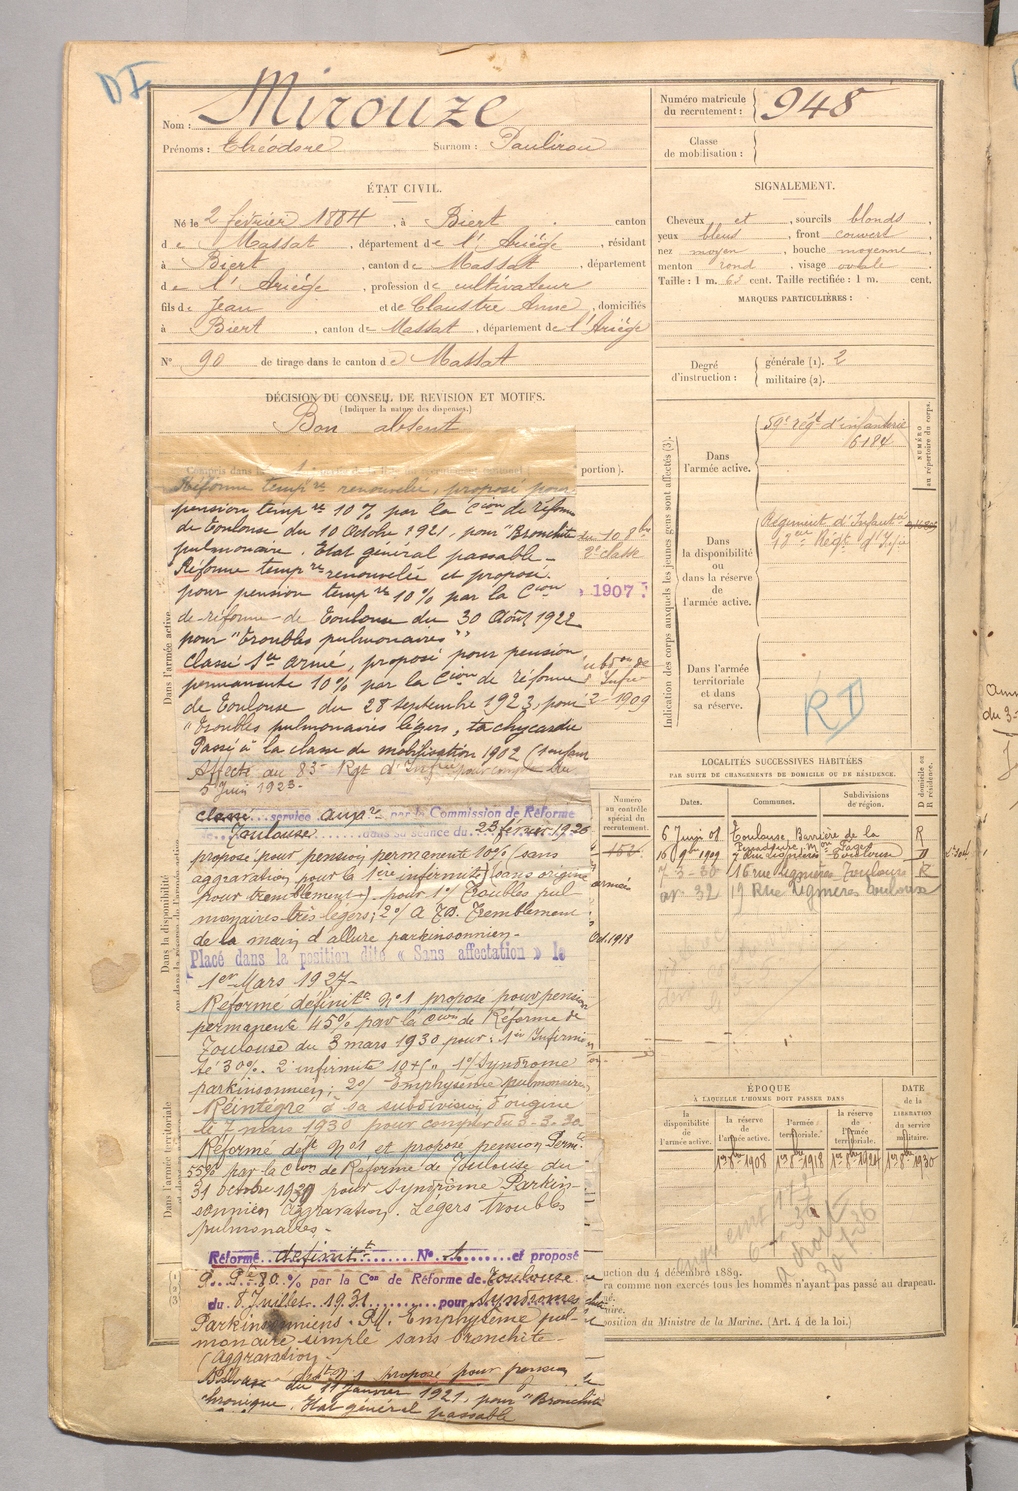 DI
Nom : Mirouze
Prénoms : Théodore Surnom : Paulirou
Numéro matricule
du recrutement : 948
Classe
de mobilisation :
ÉTAT CIVIL.
Né le 2 février 1884, à Biert canton
de Massat, département de l'Ariège, résidant
à Biert, canton de Massat, département
de l'Ariège, profession de cultivateur
fils de Jean et de Claustre Anne, domiciliés
à Biert, canton de Massat, département de l'Ariège
N° 90 de tirage dans le canton de Massat
SIGNALEMENT.
Cheveux et, sourcils blonds,
yeux bleus, front couvert,
nez moyen, bouche moyenne,
menton rond, visage ovale,
Taille : 1 m. 63 cent. Taille rectifiée : 1 m. cent.
MARQUES PARTICULIÈRES :
Degré
d'instruction :
générale (1). 2
militaire (2).
DÉCISION DU CONSEIL DE REVISION ET MOTIFS.
(Indiquer la nature des dispenses.)
Bon absent
portion).
Réforme temp.re renouvelée, proposé pour
pension temp.re 10% par la Cion de réforme
de Toulouse du 10 Octobre 1921, pour "Bronchite
pulmonaire. Etat général passable -
Réforme temp.re renouvelée et proposé
pour pension temp.re 10% par la Cion
de réforme de Toulouse du 30 Août 1922
pour "troubles pulmonaires"
Classé 1er armé, proposé pour pension
permanente 10% par la Cion de réforme
de Toulouse du 28 septembre 1923, pour
"Troubles pulmonaires légers, tachycardie
Passé à la classe de mobilisation 1902 (1 enfant
Affecté au 83e Rgt d'Infrie pour compter du
5 Juin 1923 -
classé service auxre par la Commission de Réforme
de Toulouse dans sa séance du 23 février 1926
proposé pour pension permanente 10% (sans
aggravation pour la 1ère infirmité) (sans origine
pour tremblement) pour 1°/ Troubles pul-
monaires très légers ; 2°/ A. Tremblement
de la main d'allure parkinsonnien -
Placé dans la position dite « Sans affectation » le
1er Mars 1927 -
Réformé définitif N°1 proposé pour pension
permanente 45% par la Cion de Réforme de
Toulouse du 3 mars 1930 pour : 1ère Infirmi-
té 30%. 2e infirmité 10+5, 1°/ Syndrome
parkinsonnien ; 2°/ Emphysème pulmonaire,
Réintégré à sa subdivision d'origine
le 7 mars 1930 pour compter du 3-3-30
Réformé déft N°1 et proposé pension Perm.te
55% par la Cion de Réforme de Toulouse du
31 octobre 1930 pour Syndrôme Parkin-
sonnien Aggravation. Légers troubles
pulmonaires -
Réformé définitt N° 1 et proposé
P. Pte 80 % par la Con de Réforme de Toulouse
du 8 Juillet 1931 pour Syndrome
Parkinsonniens. Emphysème pul-
monaire simple sans bronchite -
(Aggravation -
proposé pour pension
du 11 janvier 1921, pour "Bronchite
chronique. Etat général passable
du 10 8bre
2e classe
1907
2-1909
Oct. 1918
Numéro
au contrôle
spécial du
recrutement.
Indication des corps auxquels les jeunes gens sont affectés (3).
Dans
l'armée active.
59e régt d'infanterie
6184
NUMÉRO
au répertoire du corps.
Dans
la disponibilité
ou
dans la réserve
de
l'armée active.
Régiment d'Infanterie
Dans l'armée
territoriale
et dans
sa réserve.
RD
Dans l'armée active.
Dans la disponibilité
Dans l'armée territoriale
LOCALITÉS SUCCESSIVES HABITÉES
PAR SUITE DE CHANGEMENTS DE DOMICILE OU DE RÉSIDENCE.
Dates. Communes. Subdivisions
de région.
D domicile ou
R résidence.
6 Juin 08 Toulouse, Barrière de la R
16 9bre 1909 7 rue Lignières Toulouse D
7-3-30 16 rue Lignières Toulouse R
av. 32 19 Rue Lignères Toulouse
ÉPOQUE
À LAQUELLE L'HOMME DOIT PASSER DANS
la
disponibilité
de
l'armée active.
la réserve
de
l'armée active.
l'armée
territoriale.
la réserve
de
l'armée
territoriale.
DATE
de la
LIBÉRATION
du service
militaire.
1er 8bre 1908 1er 8bre 1918 1er 8bre 1924 1er 8bre 1930
uction du 4 décembre 1889.
ra comme non exercés tous les hommes n'ayant pas passé au drapeau.
position du Ministre de la Marine. (Art. 4 de la loi.)